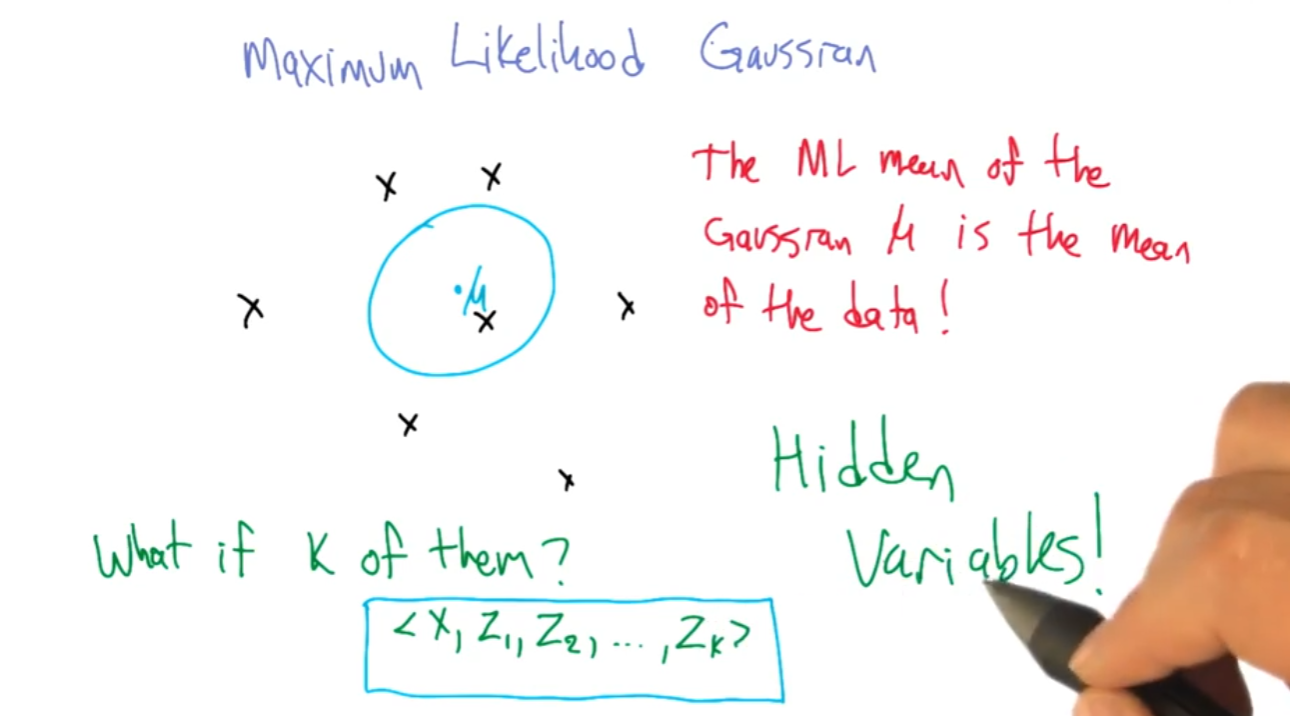 Maximum Likelihood Gaussian
The ML mean of the
Gaussian μ is the mean
of the data!
μ
Hidden
Variables!
What if K of them?
<X, Z₁, Z₂, ..., Zₖ>